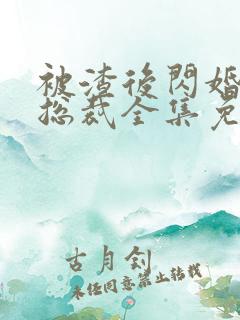 被渣後閃婚
總裁全集免
古月釗
未經同意禁止轉載